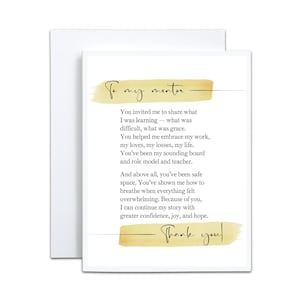 To my mentor
You invited me to share what
I was learning — what was
difficult, what was grace.
You helped me embrace my work,
my loves, my losses, my life.
You've been my sounding board
and role model and teacher.
And above all, you've been safe
space. You've shown me how to
breathe when everything felt
overwhelming. Because of you,
I can continue my story with
greater confidence, joy, and hope.
Thank you!